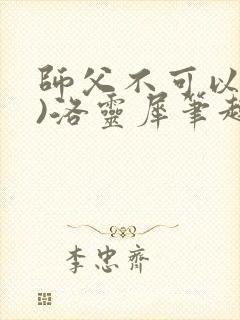 師父不可以
)洛靈犀筆趣
李忠齊